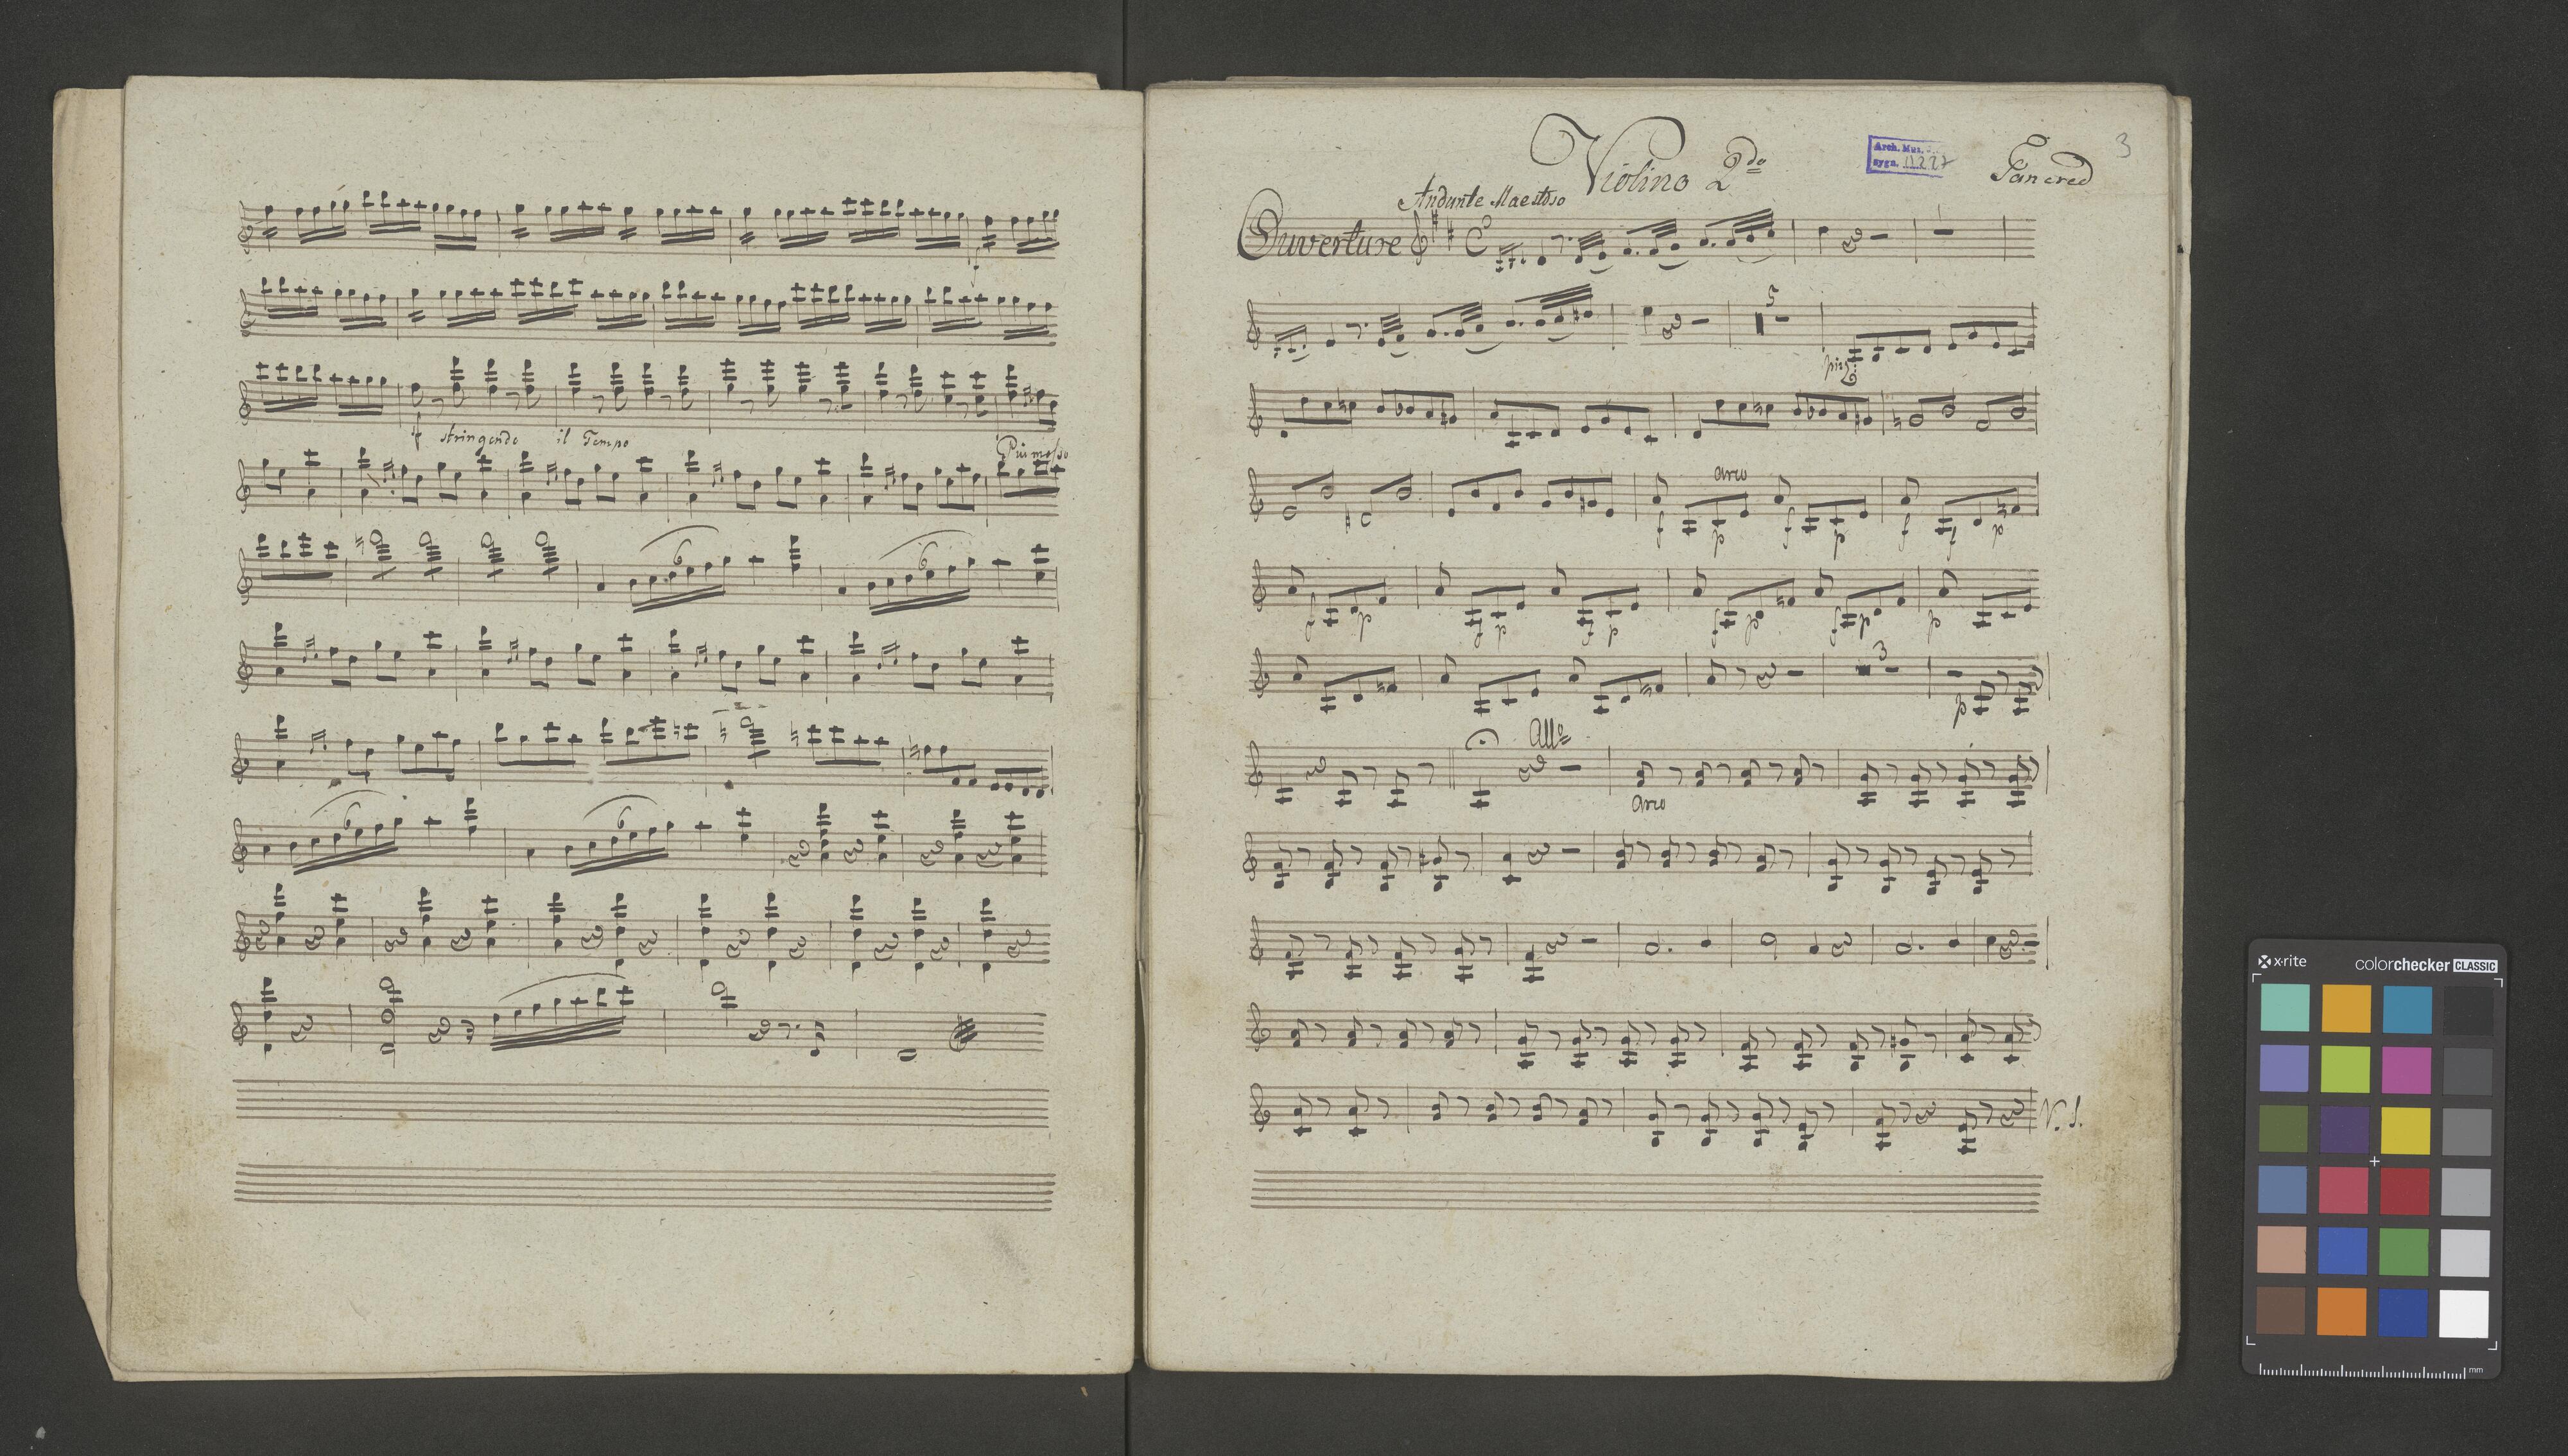 f stringendo il Tempo
Piu mosso
6
6
6
6
3
Violino 2do
Arch. Mus.
sygn. 11227
Tancred
Andante Maestoso
Ouverture
5
pizz:
arco
f p f p f f p
f p f p f p f p f p p
3
p
Allo
arco
V. S.
x-rite colorchecker CLASSIC
mm